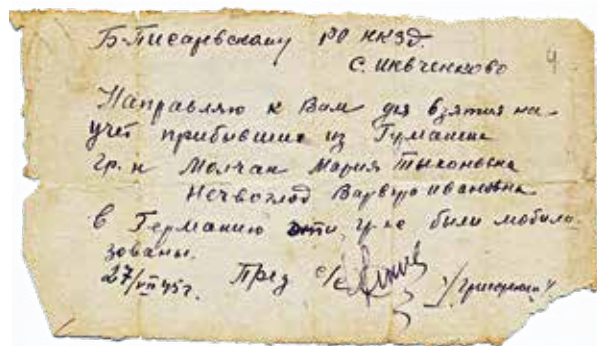 Б-Писаревскому РО НКВД.
с. Ивченково 4
Направляю к Вам для взятия на-
учет прибывшие из Гумании
гр. н Молчан Мария Тихоновна
Нечвоглод Варвара Ивановна
в Германию эти гр-не были мобили-
зованы.
27/VII 45 г. Пред с/с